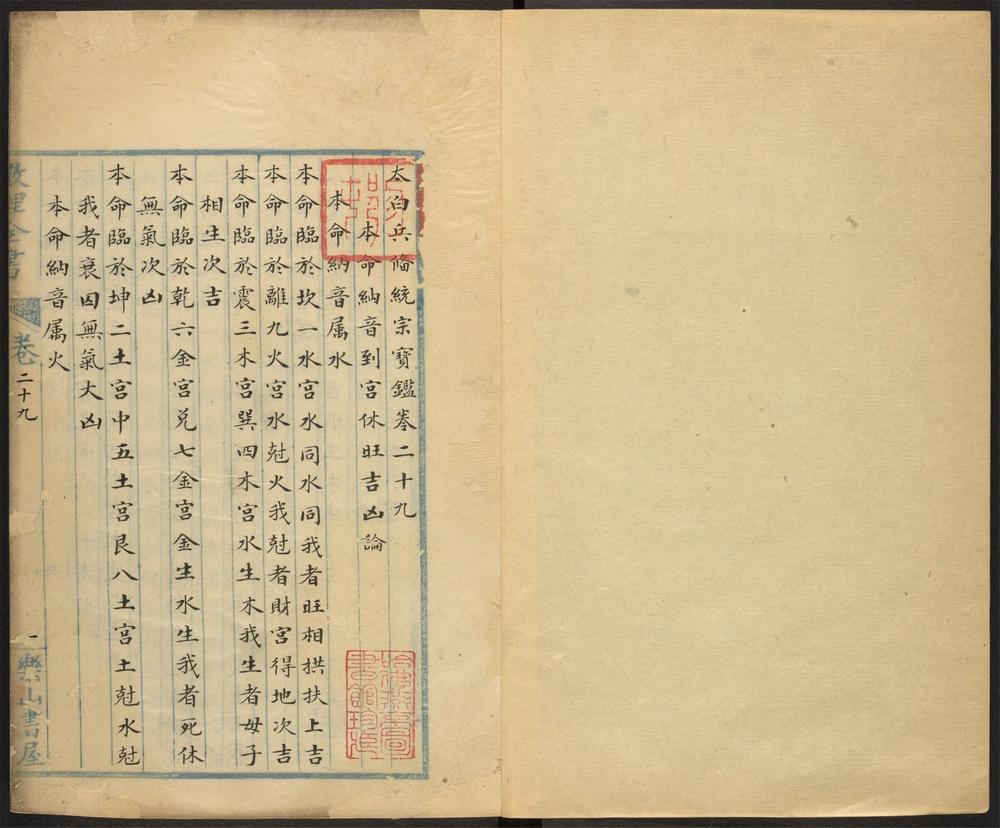 太白兵俻統宗寳鑑卷二十九
本命納音到宮休旺吉凶論
本命納音属水
本命臨於坎一水宮水同水同我者旺相拱扶上吉
本命臨於離九火宮水尅火我尅者財宮得地次吉
本命臨於震三木宮巽四木宮水生木我生者母子
相生次吉
本命臨於乾六金宮兌七金宮金生水生我者死休
無氣次凶
本命臨於坤二土宮中五土宮艮八土宮土尅水尅
我者衰囚無氣大凶
本命納音属火
數理全書
卷二十九
一
樂山書屋
哈佛燕京圖書館珍藏